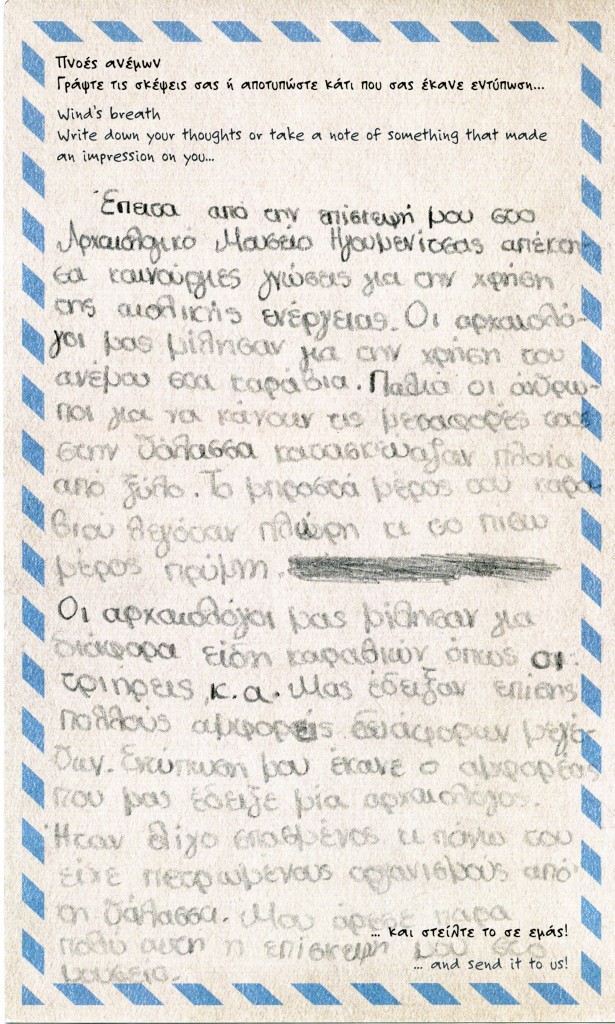 Πνοές ανέμων
Γράψτε τις σκέψεις σας ή αποτυπώστε κάτι που σας έκανε εντύπωση...
Wind's breath
Write down your thoughts or take a note of something that made
an impression on you...
Έπειτα από την επίσκεψή μου στο
Αρχαιολογικό Μουσείο Ηγουμενίτσας απέκτη-
σα καινούργιες γνώσεις για την χρήση
της αιολικής ενέργειας. Οι αρχαιολό-
γοι μας μίλησαν για την χρήση του
ανέμου στα καράβια. Παλιά οι άνθρω-
ποι για να κάνουν τις μεταφορές τους
στην θάλασσα κατασκεύαζαν πλοία
από ξύλο. Το μπροστά μέρος του καρα-
βιού λεγόταν πλώρη κι το πίσω
μέρος πρύμνη.
Οι αρχαιολόγοι μας μίλησαν για
διάφορα είδη καραβιών όπως οι
τριήρεις κ.α. Μας έδειξαν επίσης
πολλούς αμφορείς διάφορων μεγέ-
θων. Εντύπωση μου έκανε ο αμφορέας
που μας έδειξε μία αρχαιολόγος.
Ήταν λίγο σπασμένος κι πάνω του
είχε πετρωμένους οργανισμούς από
τη θάλασσα. Μου άρεσε πάρα
... και στείλτε το σε εμάς!
πολύ αυτή η επίσκεψη μου στο
... and send it to us!
μουσείο.